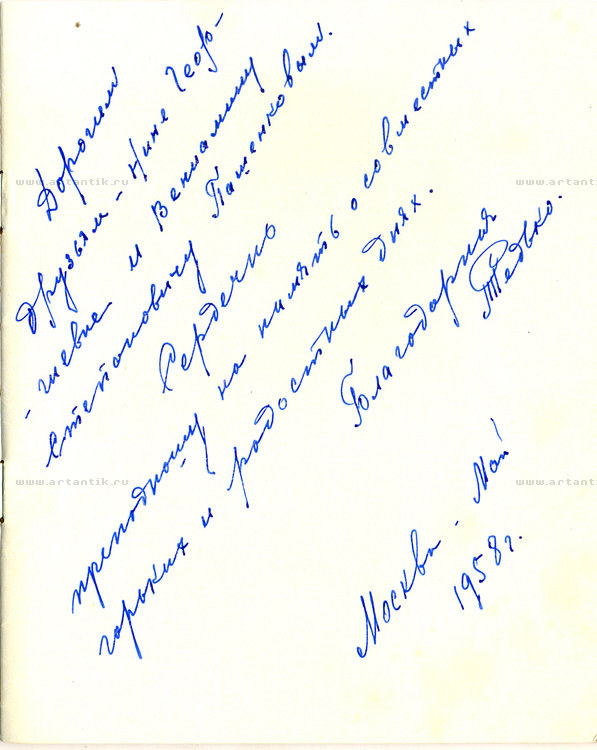 Дорогим
друзьям - Нине Геор-
-гиевне и Вениамину
Степановичу Пащенковым.
Сердечно
преподношу на память о совместных
горьких и радостных днях.
Благодарная
Москва. Май
1958 г.
www.artantik.ru
www.artantik.ru
www.artantik.ru
www.artantik.ru
www.artantik.ru
www.artantik.ru